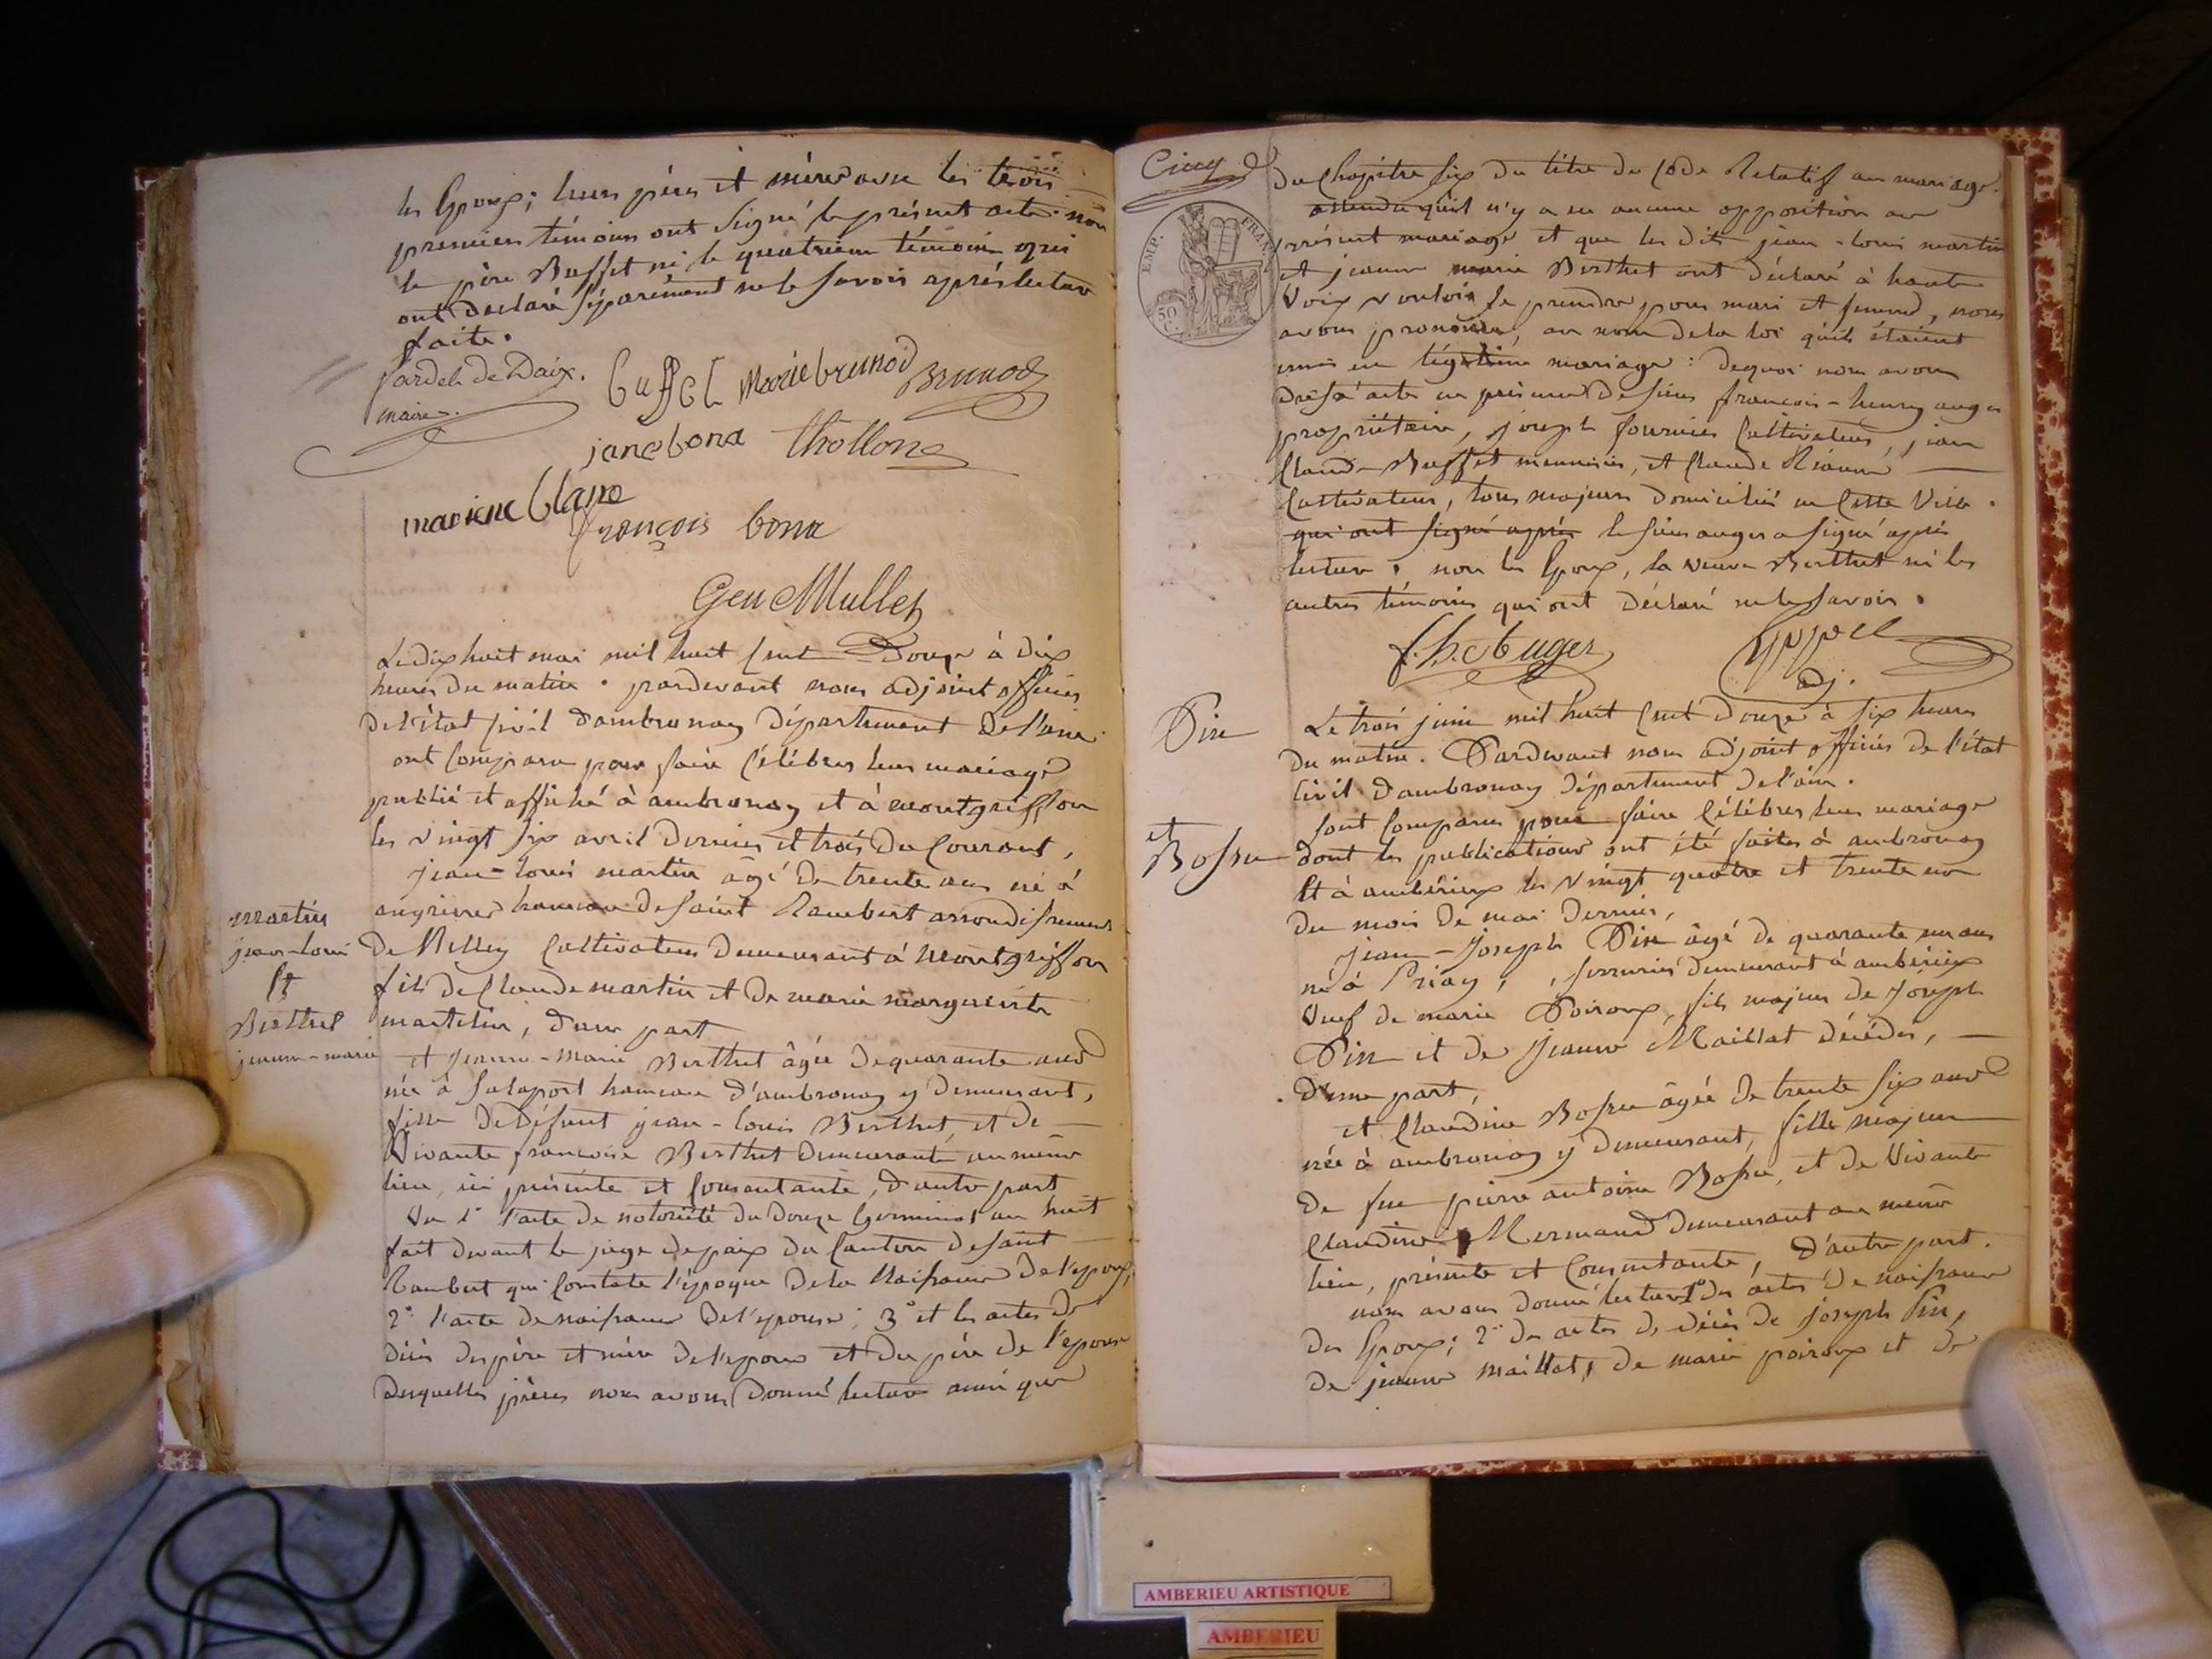 les Epoux; leurs pères et mères avec les trois
premiers témoins ont signé le présent acte. non
le père Buffet ni le quatrième témoin qui
ont déclaré séparément ne le savoir après lecture
faite.
maire.
buffet Marie brunod Brunod
jane bona thollon
mariene
françois bona
Gen Mullet
Le dix huit mai mil huit cent Douze à dix
heures du matin. pardevant nous adjoint officier
de l'état civil d'ambronay département de l'ain.
ont comparu pour faire célébrer leur mariage
publié et affiché à ambronay et à montgriffon
les vingt six avril dernier et trois du courant,
jean-louis martin âgé de trente ans né à
angrieres hameau de saint Rambert arrondissement
martin
jean-louis
Et
Berthet
jeanne-marie
de Belley cultivateur demeurant à Montgriffon
fils de Claude martin et de marie marguerite
martelin, d'une part
et jeanne-marie Berthet âgée de quarante ans
née à salaport hameau d'ambronay y demeurant,
fille de Défunt jean-louis Berthet et de
Vivante francoise Berthet demeurante au même
lieu, ici présente et consentante, d'autre part
Vu 1° l'acte de notoriété du douze Germinal an huit
fait devant le juge de paix du Canton de saint
Rambert qui constate l'époque de la Naissance de l'epoux,
2° l'acte de naissance de l'epouse; 3° et les actes de
décès des père et mère de l'epoux et du père de l'epouse
desquelles pièces nous avons donné lecture ainsi que
EMP. FRAN.
50
C.
du Chapitre six du titre du Code Relatif au mariage.
attendu qu'il n'y a eu aucune opposition au
présent mariage et que les dits jean-louis martin
et jeanne marie Berthet ont déclaré à haute
Voix vouloir se prendre pour mari et femme, nous
avons prononcé, au nom de la loi qu'ils étaient
unis en légitime mariage: de quoi nous avons
dressé acte en présence de sieurs francois-henry auger
propriétaire, joseph fournier Cultivateur, jean
Claude Buffet menuisier, et Claude Réaumé
Cultivateur, tous majeurs domiciliés en Cette Ville.
qui ont signé après le sieur auger a signé après
lecture. non les Epoux, la veuve Berthet ni les
autres témoins qui ont déclaré ne le savoir.
f. h. Auger
adj.
Pin
et
Bossu
Le trois juin mil huit cent douze à six heures
du matin. Pardevant nous adjoint officier de l'état
Civil d'ambronay département de l'ain.
sont comparus pour faire célébrer leur mariage
dont les publications ont été faites à ambronay
Et à ambérieux les vingt quatre et trente un
du mois de mai dernier,
jean-Joseph Pin âgé de quarante un ans
né à Priay, serrurier demeurant à ambérieux
Veuf de marie Poiroux, fils majeur de Joseph
Pin et de Jeanne Maillat décédés,
d'une part,
et Claudine Bossu âgée de trente six ans
née à ambronay y demeurant, fille majeure
de feu pierre antoine Bossu, et de Vivante
Claudine Mermand demeurant au même
lieu, présente et consentante, d'autre part.
nous avons donné lecture 1° des actes de naissance
des Epoux; 2° des actes de décès de joseph Pin,
de jeanne maillat, de marie poiroux et de
AMBERIEU ARTISTIQUE
AMBERIEU